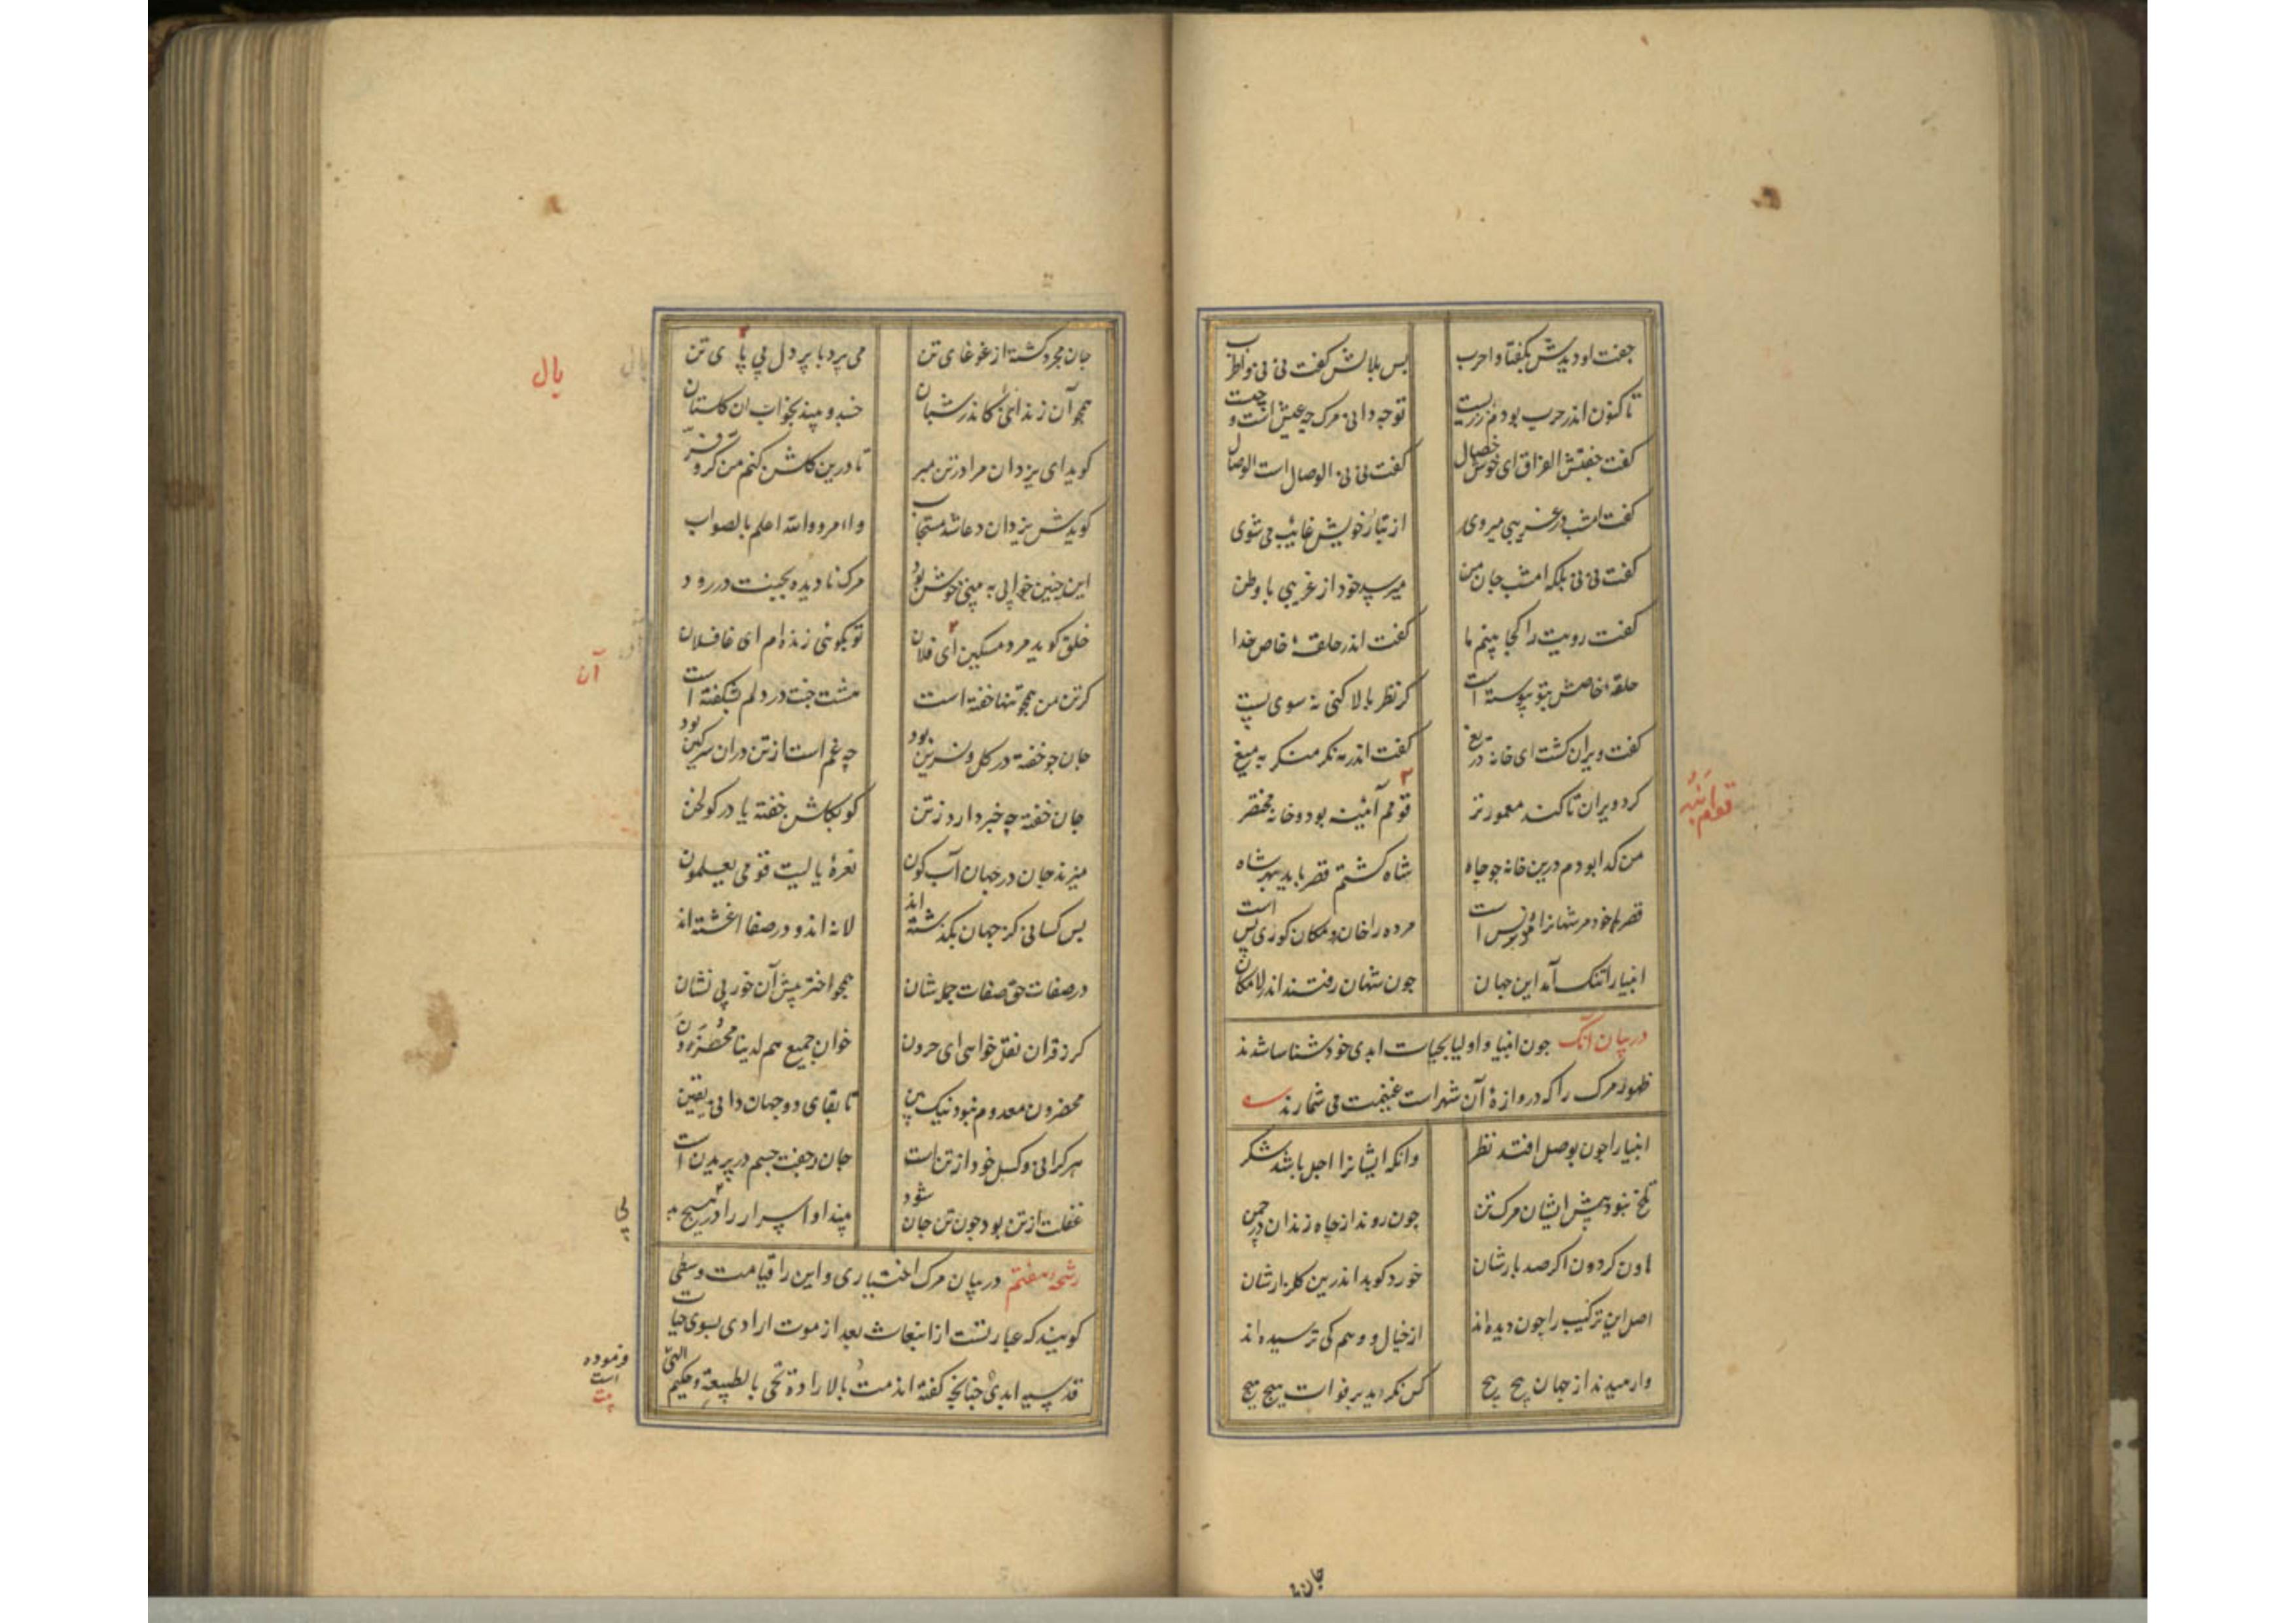 جفت او دیدش بگفتا واحرب
پس بلالش گفت نی نی واطرب
تاکنون اندر حرب بودم ز زیست
تو چه دانی مرگ چه عیش است و چیست
گفت جفتش الفراق ای خوش خصال
گفت نی نی الوصال است الوصال
گفت امشب در غریبی میروی
از تبار خویش غایب می شوی
گفت نی نی بلکه امشب جان من
میرسد خود از غریبی با وطن
گفت رویت را کجا بینم ما
گفت اندر حلقهٔ خاص خدا
حلقهٔ خاصش بتو پیوسته است
گر نظر بالا کنی نه سوی پست
گفت ویران گشت ای خانه دریغ
گفت اندر مه نگر منگر به میغ
کرد ویران تا کند معمورتر
قومم آئینه بود و خانه مختصر
من گدا بودم درین خانه چو چاه
شاه گشتم قصر باید بهر شاه
قصرها خود مر شهانرا مونس است
مرده را خان و مکان گوری بس است
انبیا را تنگ آمد این جهان
چون شهان رفتند اندر لامکان
در بیان آنک چون انبیا و اولیا بحیات ابدی خود شناسا شدند
ظهور مرگ را که دروازهٔ آن شهر است غنیمت می شمارند
انبیا را چون بوصل افتد نظر
وانکه ایشانرا اجل باشد شکر
تلخ نبود پیش ایشان مرگ تن
چون روند از چاه زندان در چمن
هاون گردون اگر صد بارشان
خورد کوبد اندرین گلزارشان
اصل این ترکیب را چون دیده اند
از خیال و وهم کی ترسیده اند
وارهیدند از جهان پیچ پیچ
کس نگردید بر فوات هیچ هیچ
جان مجرد گشته از غوغای تن
می پرد با پر دل بی پای تن
همچو آن زندانئی کاندر شبان
خسبد و بیند بخواب ان گلستان
گوید ای یزدان مرا در تن مبر
تا درین گلشن کنم من کر و فر
گویدش یزدان دعا شد مستجاب
وامرو والله اعلم بالصواب
این چنین خوابی به بینی خوش بود
مرگ نادیده بجنت در رود
خلق گوید مرد مسکین ای فلان
تو بگوئی زنده ام ای غافلان
گر تن من همچو تنها خفته است
هشت جنت در دلم بشکفته است
جان چو خفته در گل و نسرین بود
چه غم است ار تن در ان سرگین بود
جان خفته چه خبر دارد ز تن
کو بگلشن خفته یا در گولخن
میزند جان در جهان آب گون
نعرهٔ یا لیت قومی یعلمون
پس کسانی کز جهان بگذشته اند
لا نه اند و در صفا اغشته اند
در صفات حق صفات جمله شان
همچو اختر پیش آن خور بی نشان
گر ز قران نقل خواهی ای حرون
خوان جمیع هم لدینا محضرون
محضرون معدوم نبود نیک بین
تا بقای دو جهان دانی یقین
هر گرانی و کسل خود از تن است
جان ز خفت جسم در پریدن است
غفلت از تن بود چون تن جان شود
بیند او اسرار را در هیچ بد
رشحهٔ هفتم در بیان مرگ اختیاری و این را قیامت وسطی
گویند که عبارتست از انبعاث بعد از موت ارادی بسوی حیات
قدسیه ابدی چنانچه گفته اند مت بالارادة تحی بالطبیعة و حکیم الهی
فرموده
است
بال
آن
جان ما